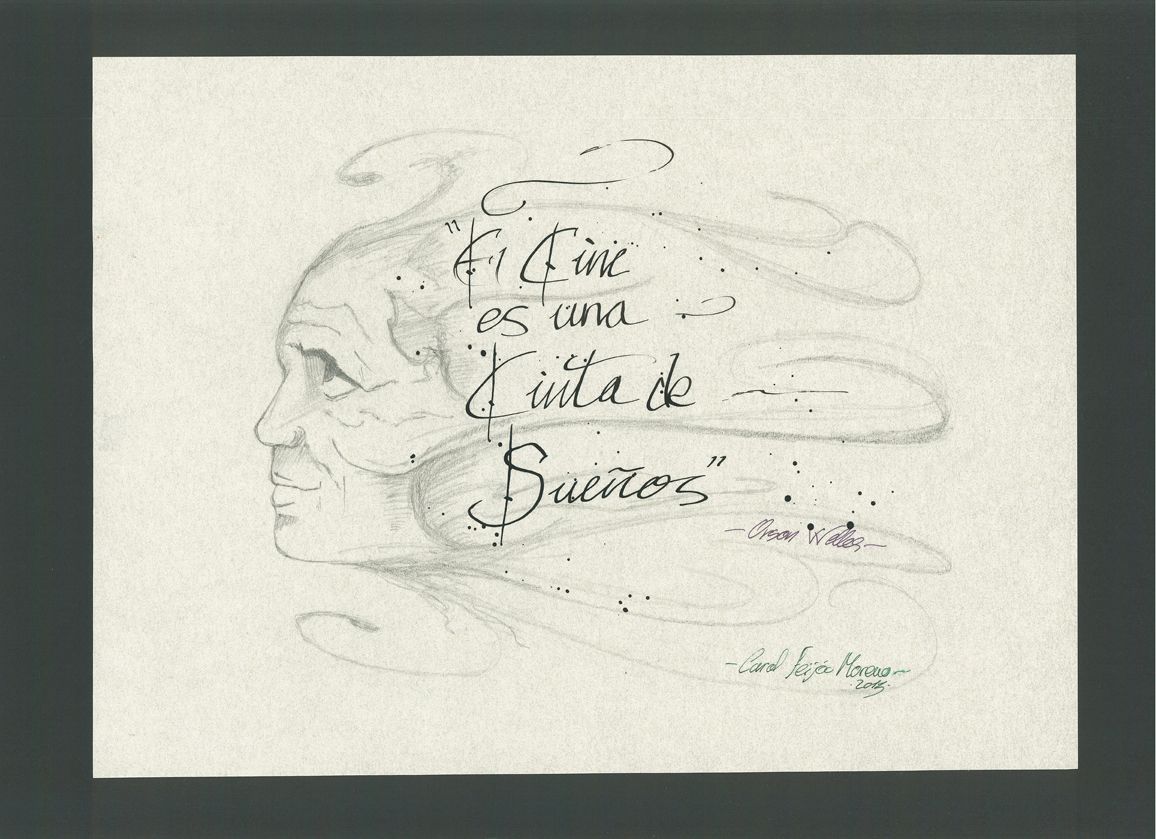 "El Cine
es una
Cinta de
Sueños"
-Orson Welles-
-Carol Feijóo Moreno-